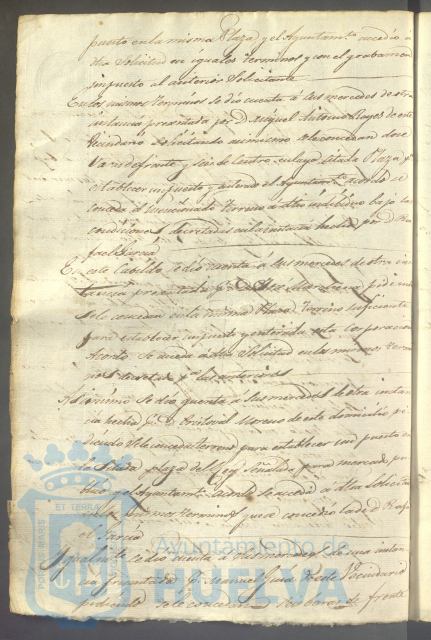 puesto en la misma Plaza, y el Ayuntamto. accedió á
dha Solicitud en iguales terminos y con el grabamen
impuesto al anterior Solicitante
En los mismos terminos se dió cuenta á sus mercedes de otra
instancia presentada por D. Miguel Antonio Reyes de este
Vecindario solicitando asimismo se le concedan doce
Varas de frente y seis de centro en la ya citada Plaza pa.
establecer un puesto y enterado el Ayuntamto. acordó se
conceda el mencionado terreno á dho individuo bajo las
condiciones decretadas en la instancia hecha por D. Ra
fael Garcia
En este Cabildo se dió cuenta á sus mercedes de otra ins
tancia presentada pr. D. José pidiendo
se le concedan en la misma Plaza terreno suficiente
para establecer un puesto y enterada esta Corporacion
Acordó se acceda á dha Solicitud en los mismos termi
nos decretados pa. los anteriores
Asimismo se dió cuenta á sus mercedes de otra instan
cia hecha pr. D. Cristoval Moreno de este domicilio pi
diendo se le conceda terreno para establecer un puesto en
la citada plaza del Rey señalada para mercado pu
blico y el Ayuntamto. acordó se acceda á dha solicitud
en los mismos terminos que se concedio la de D. Rafa
el Garcia
Igualmte. se dió cuenta á sus mercedes de una instan
cia presentada pr. Manuel de este Vecindario
pidiendo se le concedan seis baras de frente
ET TERRAE
Ayuntamiento de
HUELVA